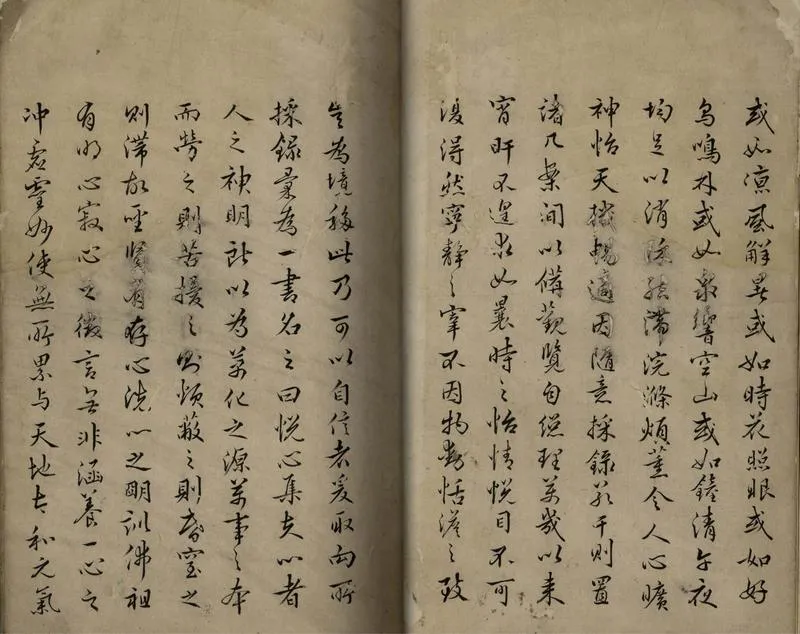 或如涼風解暑或如時花照眼或如好
鳥鳴林或如泉響空山或如鐘清午夜
均足以消除結滯浣滌煩薰令人心曠
神怡天機暢適因隨意採錄若干則置
諸几案間以備觀覽自總理萬幾以來
宵旰不遑求如曩時之怡情悅目不可
復得然寧靜之宰不因物動恬澹之致
豈為境移此乃可以自信者爰取向所
採錄彙為一書名之曰悅心集夫心者
人之神明所以為萬化之源萬事之本
而勞之則苦擾之則煩蔽之則昏窒之
則滯故聖賢有存心洗心之明訓佛祖
有明心寂心之微言無非涵養一心之
沖虛靈妙使無所累与天地太和元氣